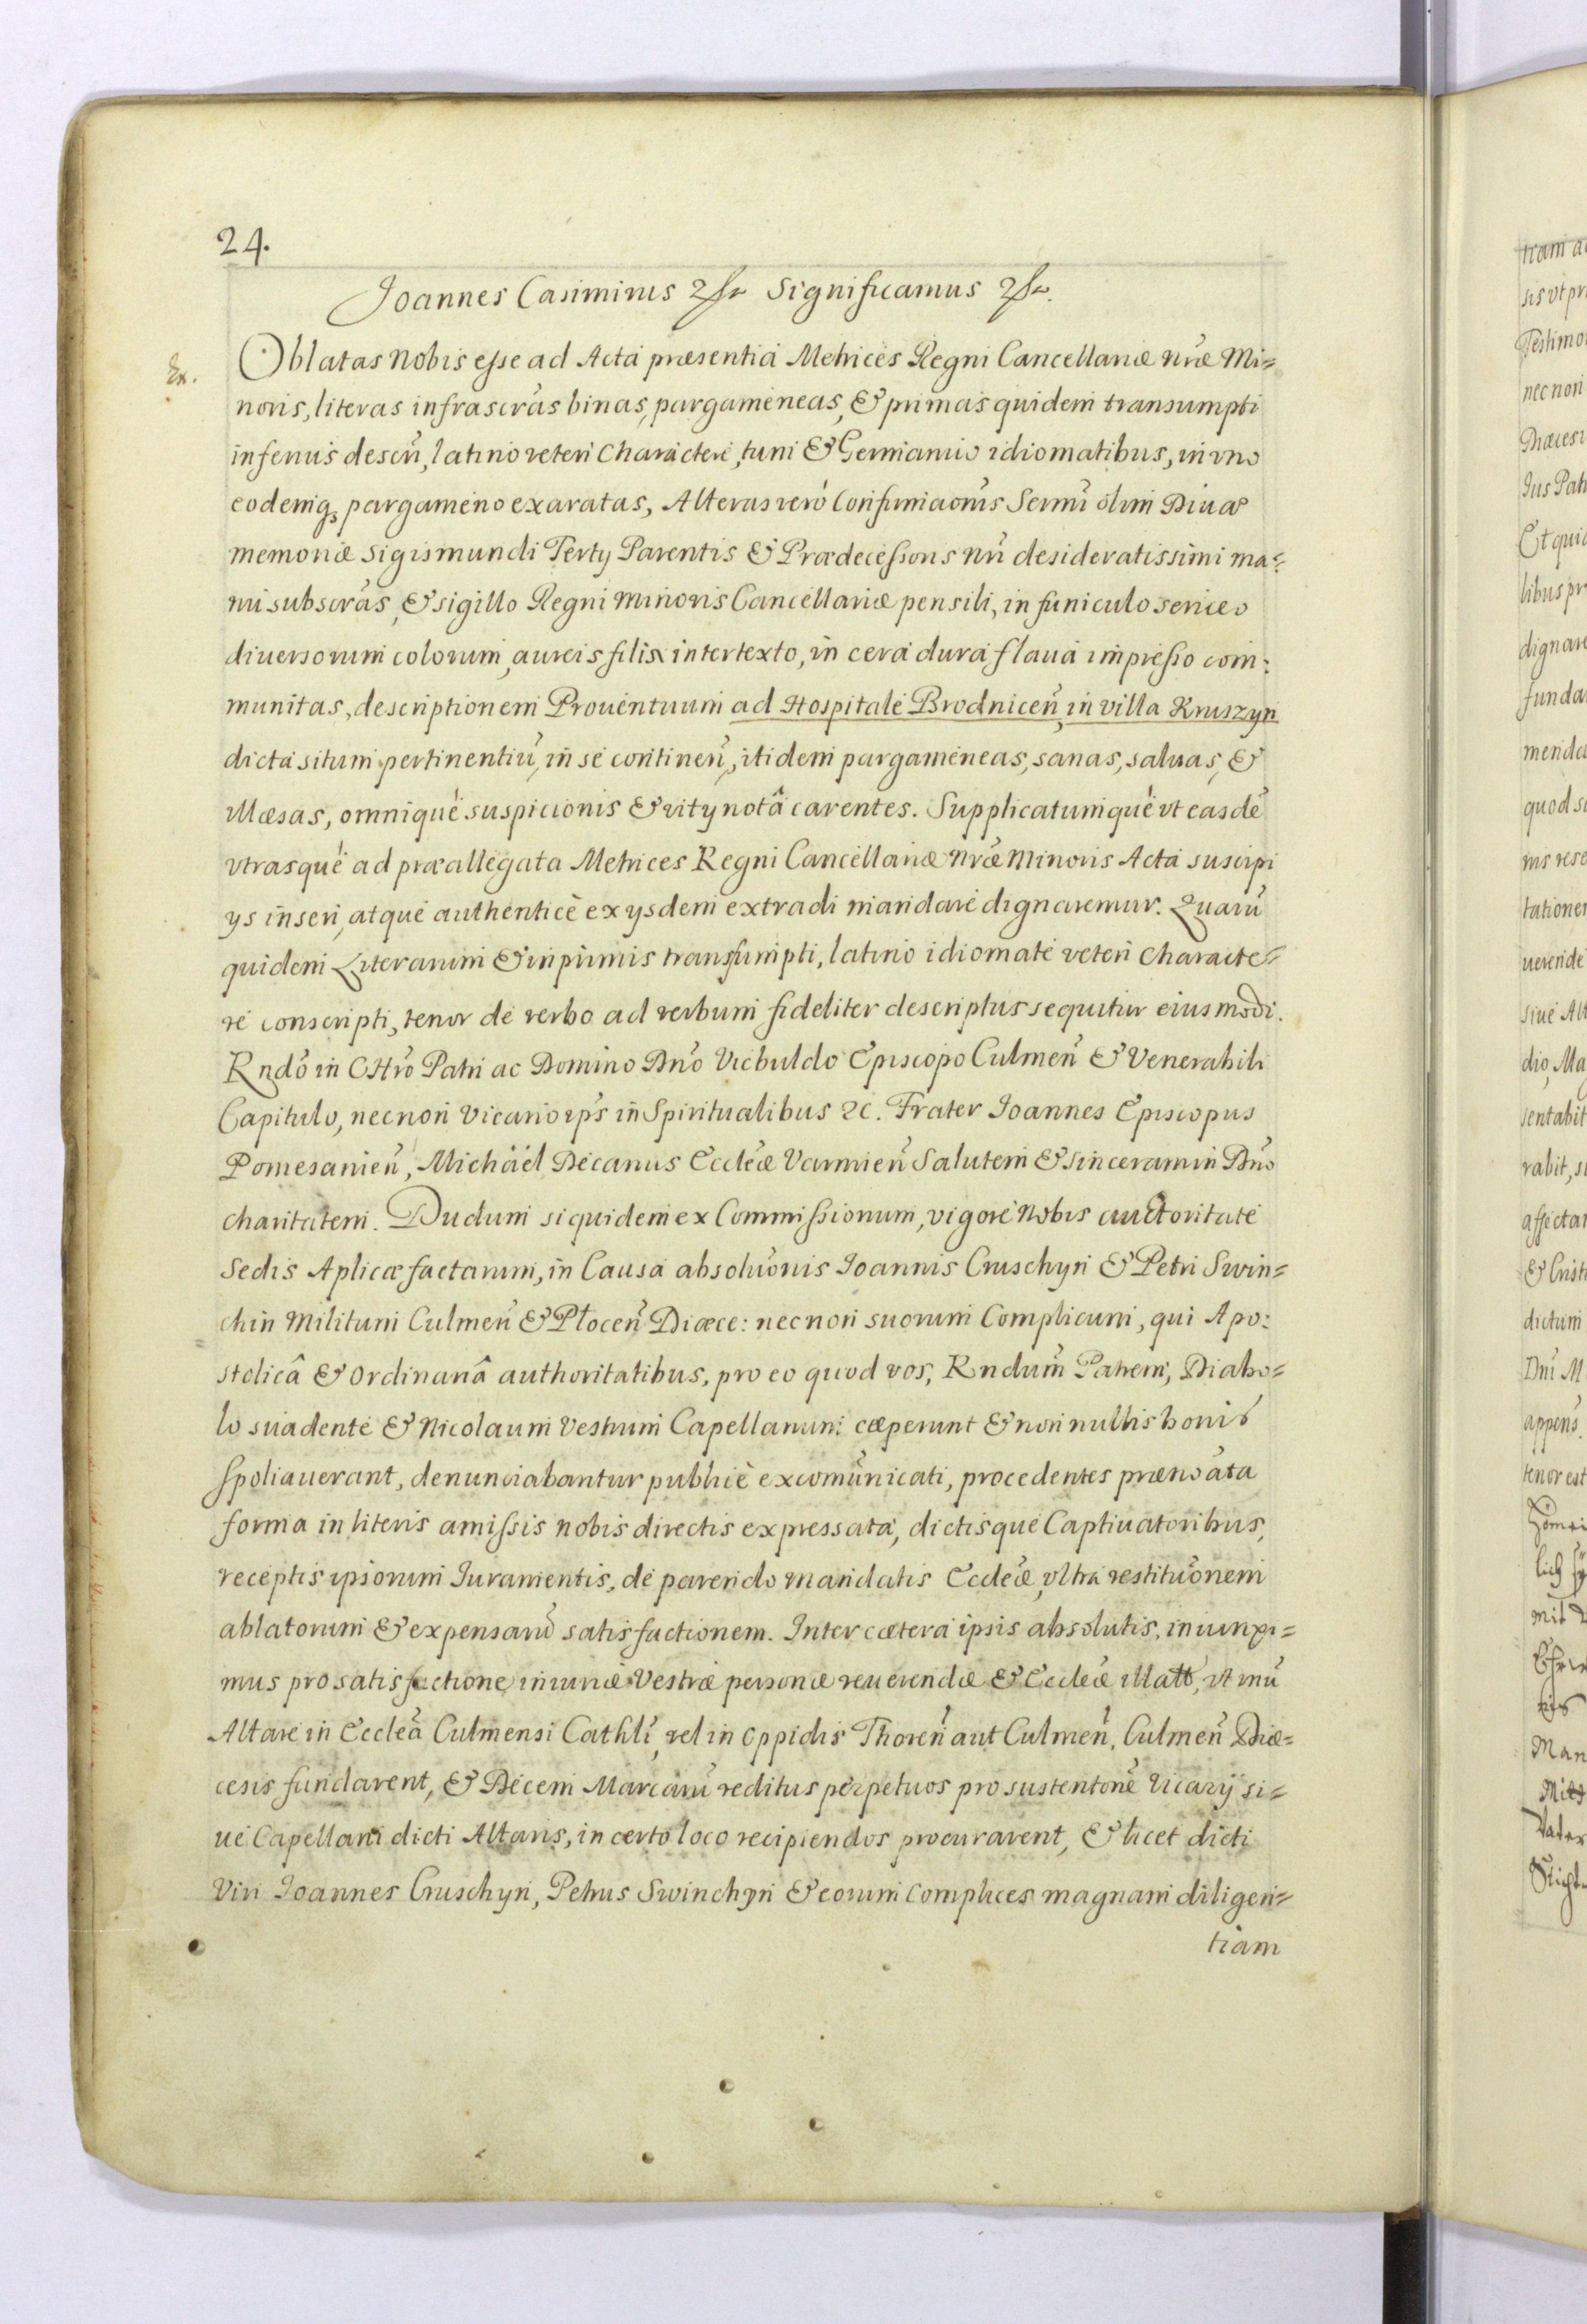 24.
Joannes Casimirus &c Significamus &c.
Ex.
Oblatas nobis esse ad Acta præsentia Metrices Regni Cancellariæ nr̃æ Mi=
noris, literas infrascrãs binas, pargameneas, & primas quidem transumpti
inferius descrĩ, latino veteri Charactere, tum & Germanico idiomatibus, in vno
eodemq₃ pargameno exaratas, Alteras verò Confirmãonis Serm̃i olim Diuæ
memoriæ Sigismundi Tertij Parentis & Prædecessoris nr̃i desideratissimi ma=
nu subscrãs, & sigillo Regni minoris Cancellariæ pensili, in funiculo sericeo
diuersorum colorum, aureis filis intertexto, in cera dura flaua impresso com:
munitas, descriptionem Prouentuum ad Hospitale Brodnicen̄, in villa Kruszyn
dicta situm pertinentiũ, in se continen̄, itidem pargameneas, sanas, saluas, &
illæsas, omniquè suspicionis & vitij notâ carentes. Supplicatumquè vt easdẽ
vtrasquè ad præallegata Metrices Regni Cancellariæ nr̃æ Minoris Acta suscipi
ijs inseri, atque authenticè ex ijsdem extradi mandare dignaremur. Quarũ
quidem Literarum & inprimis transsumpti, latino idiomate veteri Characte=
re conscripti, tenor de verbo ad verbum fideliter descriptus sequitur eiusmodi.
Rndõ in CHrõ Patri ac Domino Dnõ Vicbuldo Episcopo Culmen̄ & Venerabili
Capitulo, necnon Vicario ip̃s in Spiritualibus &c. Frater Joannes Episcopus
Pomesanien̄, Michäel Decanus Eccleẽ Varmien̄ Salutem & sinceram in Dnõ
charitatem. Dudum siquidem ex Commissionum, vigore nobis auctoritate
Sedis Aplicæ factarum, in Causa absolũonis Joannis Cruschyn & Petri Swin=
chin Militum Culmen̄ & Plocen̄ Diœce: necnon suorum Complicum, qui Apo:
stolicâ & ordinariâ authoritatibus, pro eo quod vos, Rndum̃ Patrem, Diabo=
lo suadente & Nicolaum Vestrum Capellanum cæperunt & nonnullis bonis
spoliauerant, denunciabantur publicè excomũnicati, procedentes prænõata
forma in literis amissis nobis directis expressata, dictisque Captiuatoribus,
receptis ipsorum Juramentis, de parendo mandatis Eccleæ, vltra restitũonem
ablatorum & expensarũ satisfactionem. Inter cætera ipsis absolutis, iniunxi=
mus pro satisfactione iniuriæ Vestræ personæ reuerendæ & Eccleæ illatæ, vt vnũ
Altare in Ecclẽa Culmensi Cathlĩ, vel in oppidis Thoren̄ aut Culmen̄, Culmen̄ Diœ=
cesis fundarent, & Decem Marcarũ reditus perpetuos pro sustentõne Vicarij si=
ue Capellani dicti Altaris, in certo loco recipiendos procurarent, & licet dicti
Viri Joannes Cruschyn, Petrus Swinchyn & eorum complices magnam diligen=
tiam